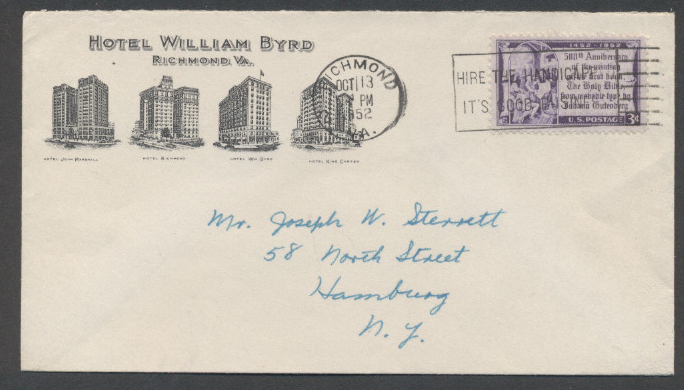 HOTEL WILLIAM BYRD
RICHMOND, VA.
HOTEL JOHN MARSHALL
HOTEL RICHMOND
HOTEL WM BYRD
HOTEL KING CARTER
RICHMOND
OCT 13
PM
1952
VA.
HIRE THE HANDICAPPED
IT'S GOOD
1452 1952
500th Anniversary
of the printing
of the first book,
The Holy Bible,
from movable type, by
Johann Gutenberg
U.S. POSTAGE 3¢
Mr. Joseph W. Sterrett
58 North Street
Hamburg
N. Y.